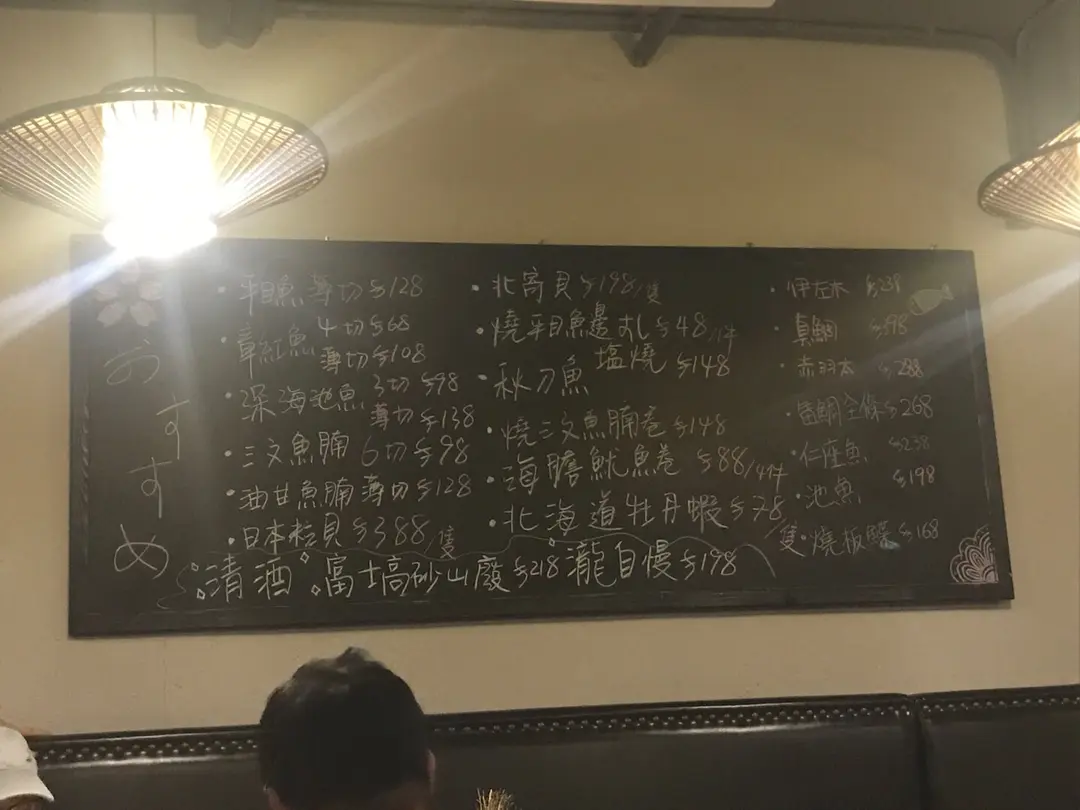 おすすめ
・平目魚薄切$128
・章紅魚 4切$68
薄切$108
・深海池魚 3切$98
薄切$138
・三文魚腩 6切$98
・油甘魚腩薄切$128
・日本粒貝$388/隻
・北寄貝$198/隻
・燒平目魚邊 $48/件
・秋刀魚 塩燒 $148
・燒三文魚腩卷$148
・海膽魷魚卷 $88/4件
・北海道牡丹蝦$78/隻
・伊左木 $239
・真鯛 $98
・赤羽太 $288
・盐鯛全條$268
・仁座魚 $238
・池魚 $198
・燒板蟹$168
清酒 富士高砂山廢$218 瀧自慢$198